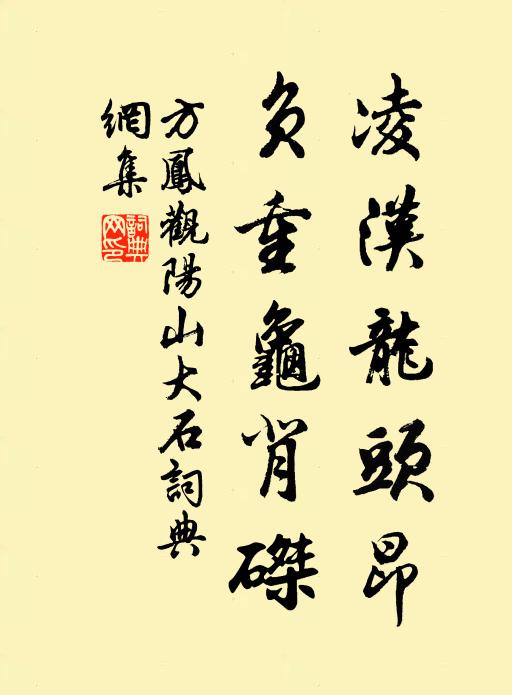 凌漢龍頭昂
負重龜背磔
方鳳觀陽山大石詞典
網集
詞典
网印